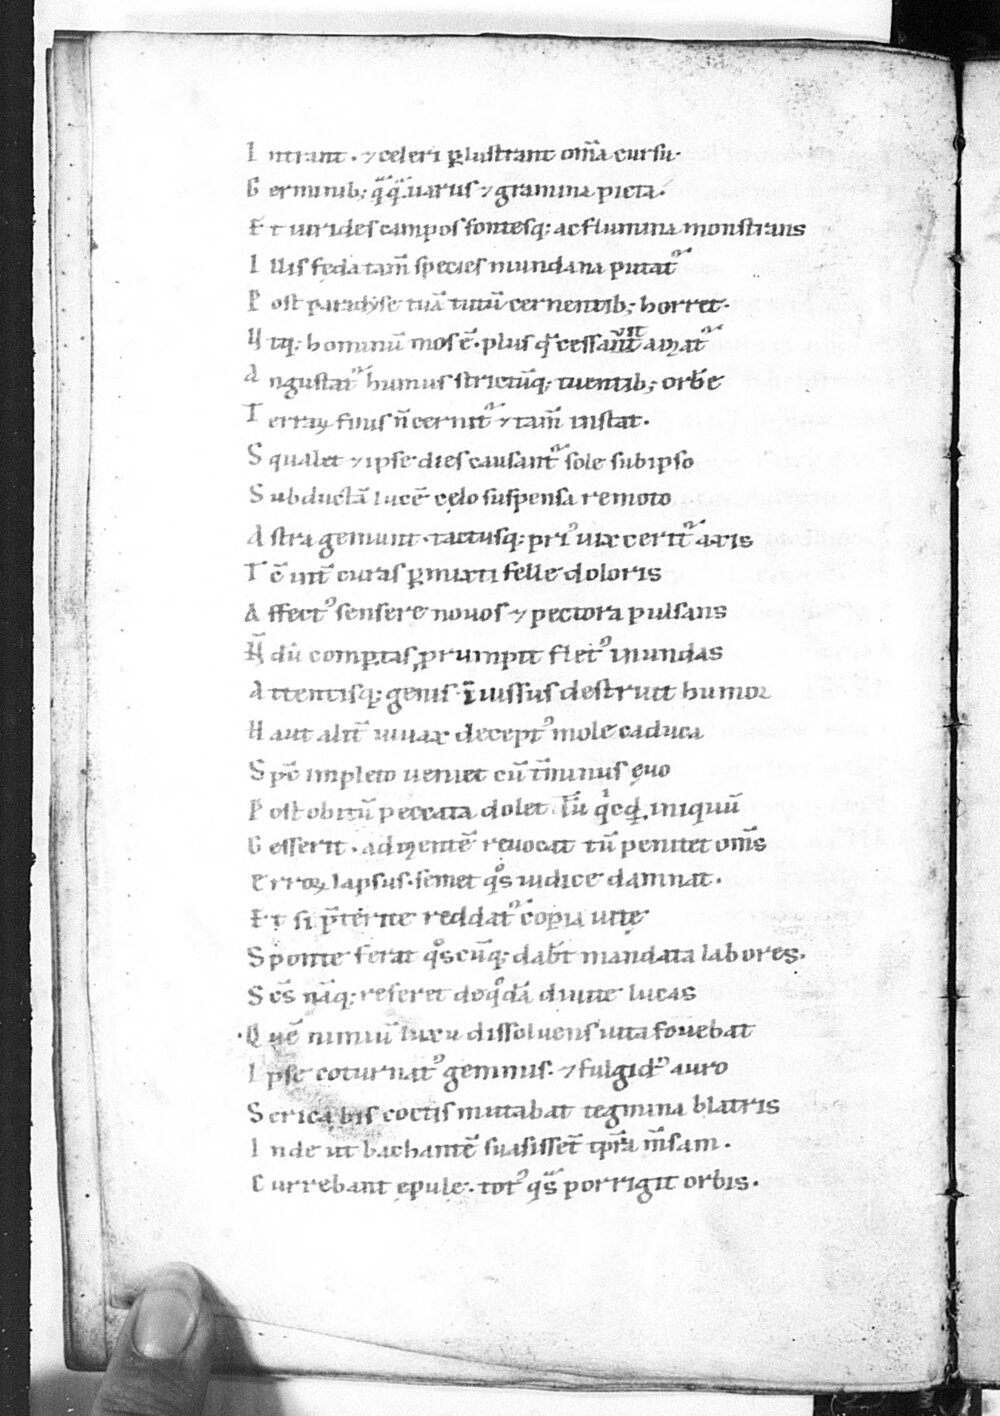 I ntrant · ⁊ celeri ꝑlustrant om̅a cursu ·
G erminib; q̅q̅ uarus ⁊ gramina picta ·
E t uirides campos fontesq; ac flumina monstrans
I llis fęda tam̅ species mundana putat᷑
P ost paradyse tuā tutū cernentib; horret ·
U tq; hominū mos ē · plus q̅ cessauit̅ amat᷑
A ngustat᷑ humus strictūq; tuentib; orbē
T erraꝝ finis n̅ cernit᷑ ⁊ tam̅ instat ·
S qualet ⁊ ipse dies causant᷑ sole sub ipso
S ubductā lucē cęlo suspensa remoto
A stra gemunt · tactusq; pri᷒ uix cerit᷑ axis
T c̅ int̅ curas ꝑmixti felle doloris
A ffect᷒ sensere nouos ⁊ pectora pulsans
dū comp̱tas prumpit flet᷒ inundas
A ttentisq; genis · iniussus destruit humor
H aut alit̅ uiuax decept᷒ mole caduca
S pē impleto ueniet cū t̅minus ęuo
P ost obitū peccata dolet tū qͥcqͥd iniquū
G esserit · ad mentē reuocat tū penitet om̅s
E rroꝝ lapsus · semet qͦs iudice damnat ·
E t si p̅terite reddat᷑ copia uitę
S ponte ferat qͦscūq; dab̅t mandata labores ·
S c̅s nāq; referet de qͦdā diuite lucas
· Q uē nimiū luxu dissoluens uita fouebat
I pse coturnat᷒ gemmis · ⁊ fulgid᷒ auro
S erica bis coctis mutabat tegmina blatris
I nde ut bachantē suasisset tp̅ra m̅sam ·
C urrebant epulę · tot᷒ qͣs porrigit orbis ·